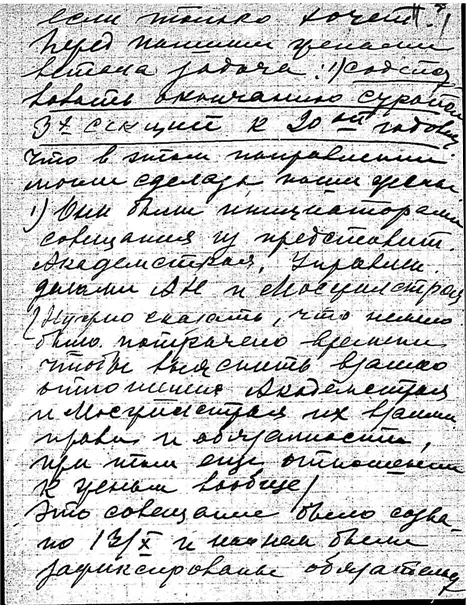 если только хочет!!?!
Перед нашими членами
встала задача: 1) содейство
вовать окончанию стройки
3х секций к 20ой годовщ
Что в этом направлении
могли сделать наши члены
1) Они были инициаторами
совещания из представит.
Академстроя, Управ.
делами АН и Мосжилстроя
(Нужно сказать, что немало
было потрачено времени
чтобы выяснить взаимо
отношения Академстроя
и Мосжилстроя их взаимн
права и обязанности,
при этом еще отношения
к ценам вообще)
Это совещание было созва-
но 13/X и на нем были
зафиксированы обязательс